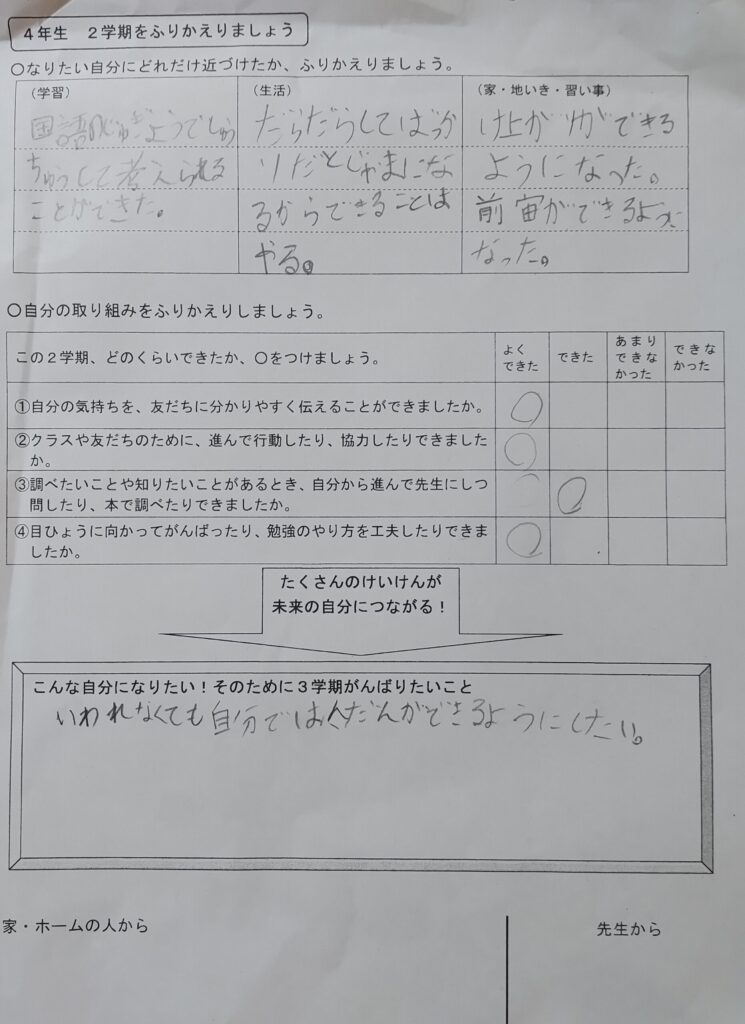 4年生　2学期をふりかえりましょう
〇なりたい自分にどれだけ近づけたか、ふりかえりましょう。
（学習）
国語のじゅぎょうでしゅう
ちゅうして考えられる
ことができた。
（生活）
だらだらしてばっか
りだとじゃまにな
るからできることは
やる。
（家・地いき・習い事）
け上がりができる
ようになった。
前宙ができるように
なった。
〇自分の取り組みをふりかえりしましょう。
この2学期、どのくらいできたか、〇をつけましょう。
よく
できた
できた
あまり
できな
かった
できな
かった
①自分の気持ちを、友だちに分かりやすく伝えることができましたか。
②クラスや友だちのために、進んで行動したり、協力したりできました
か。
③調べたいことや知りたいことがあるとき、自分から進んで先生にしつ
問したり、本で調べたりできましたか。
④目ひょうに向かってがんばったり、勉強のやり方を工夫したりできま
したか。
たくさんのけいけんが
未来の自分につながる！
こんな自分になりたい！そのために3学期がんばりたいこと
いわれなくても自分ではんだんができるようにしたい。
家・ホームの人から
先生から